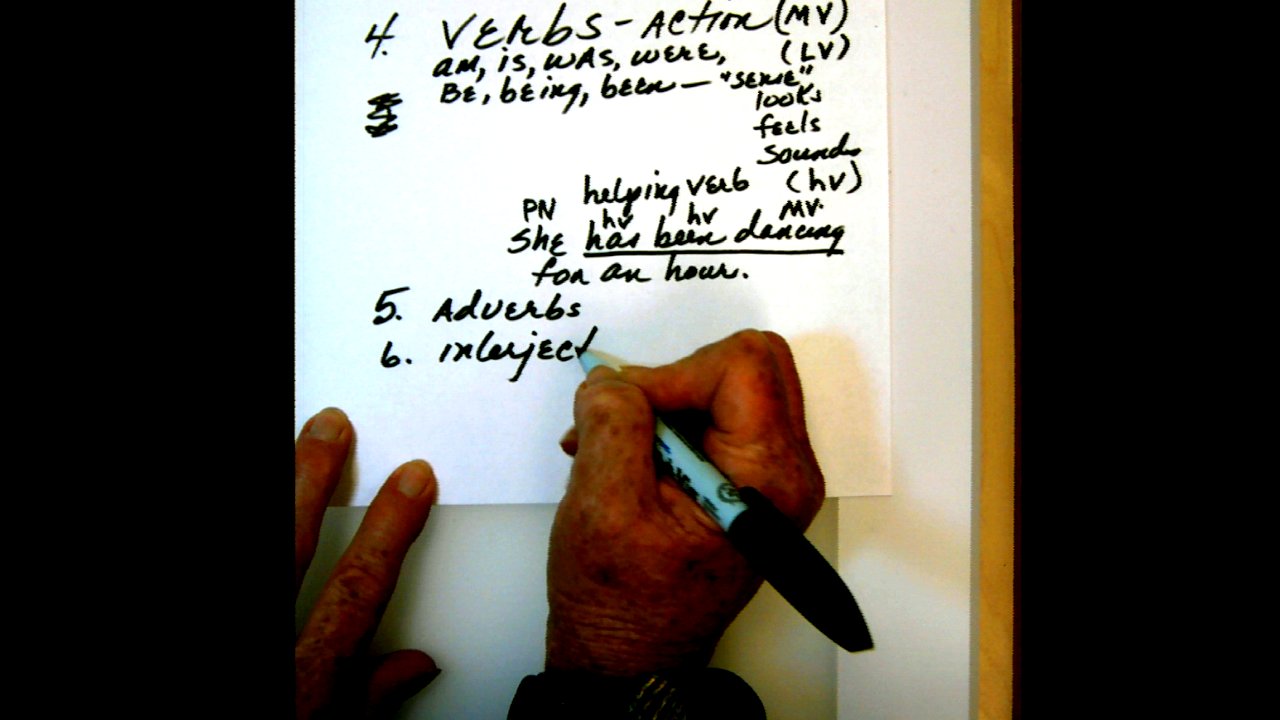 4. VERbS - ACTION (MV)
am, is, was, were, (LV)
BE, being, been — "SENSE"
looks
feels
sounds
helping VERb (hv)
PN hv hv MV.
She has been dancing
for an hour.
5. AdvERbs
6. interject